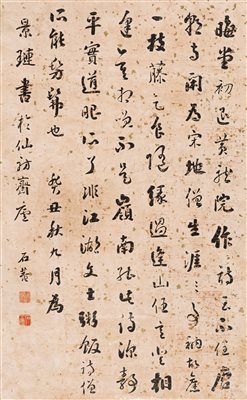 晦堂初退黃龍院作詩云不住唐
朝寺閑為宋地僧生涯三事衲故舊
一枝藤乞食隨緣過逢山任意登相
逢莫相笑不是嶺南能此詩深靜
平實道眼所了非江湖文士粥飯詩僧
所能髣髴也 癸丑秋九月為
景璉書於仙訪齋 石